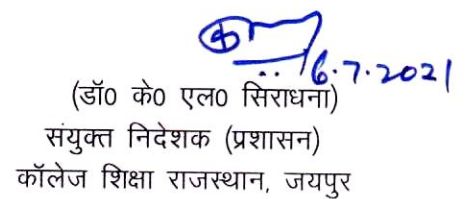 6.7.2021
(डॉ0 के0 एल0 सिराधना)
संयुक्त निदेशक (प्रशासन)
कॉलेज शिक्षा राजस्थान, जयपुर